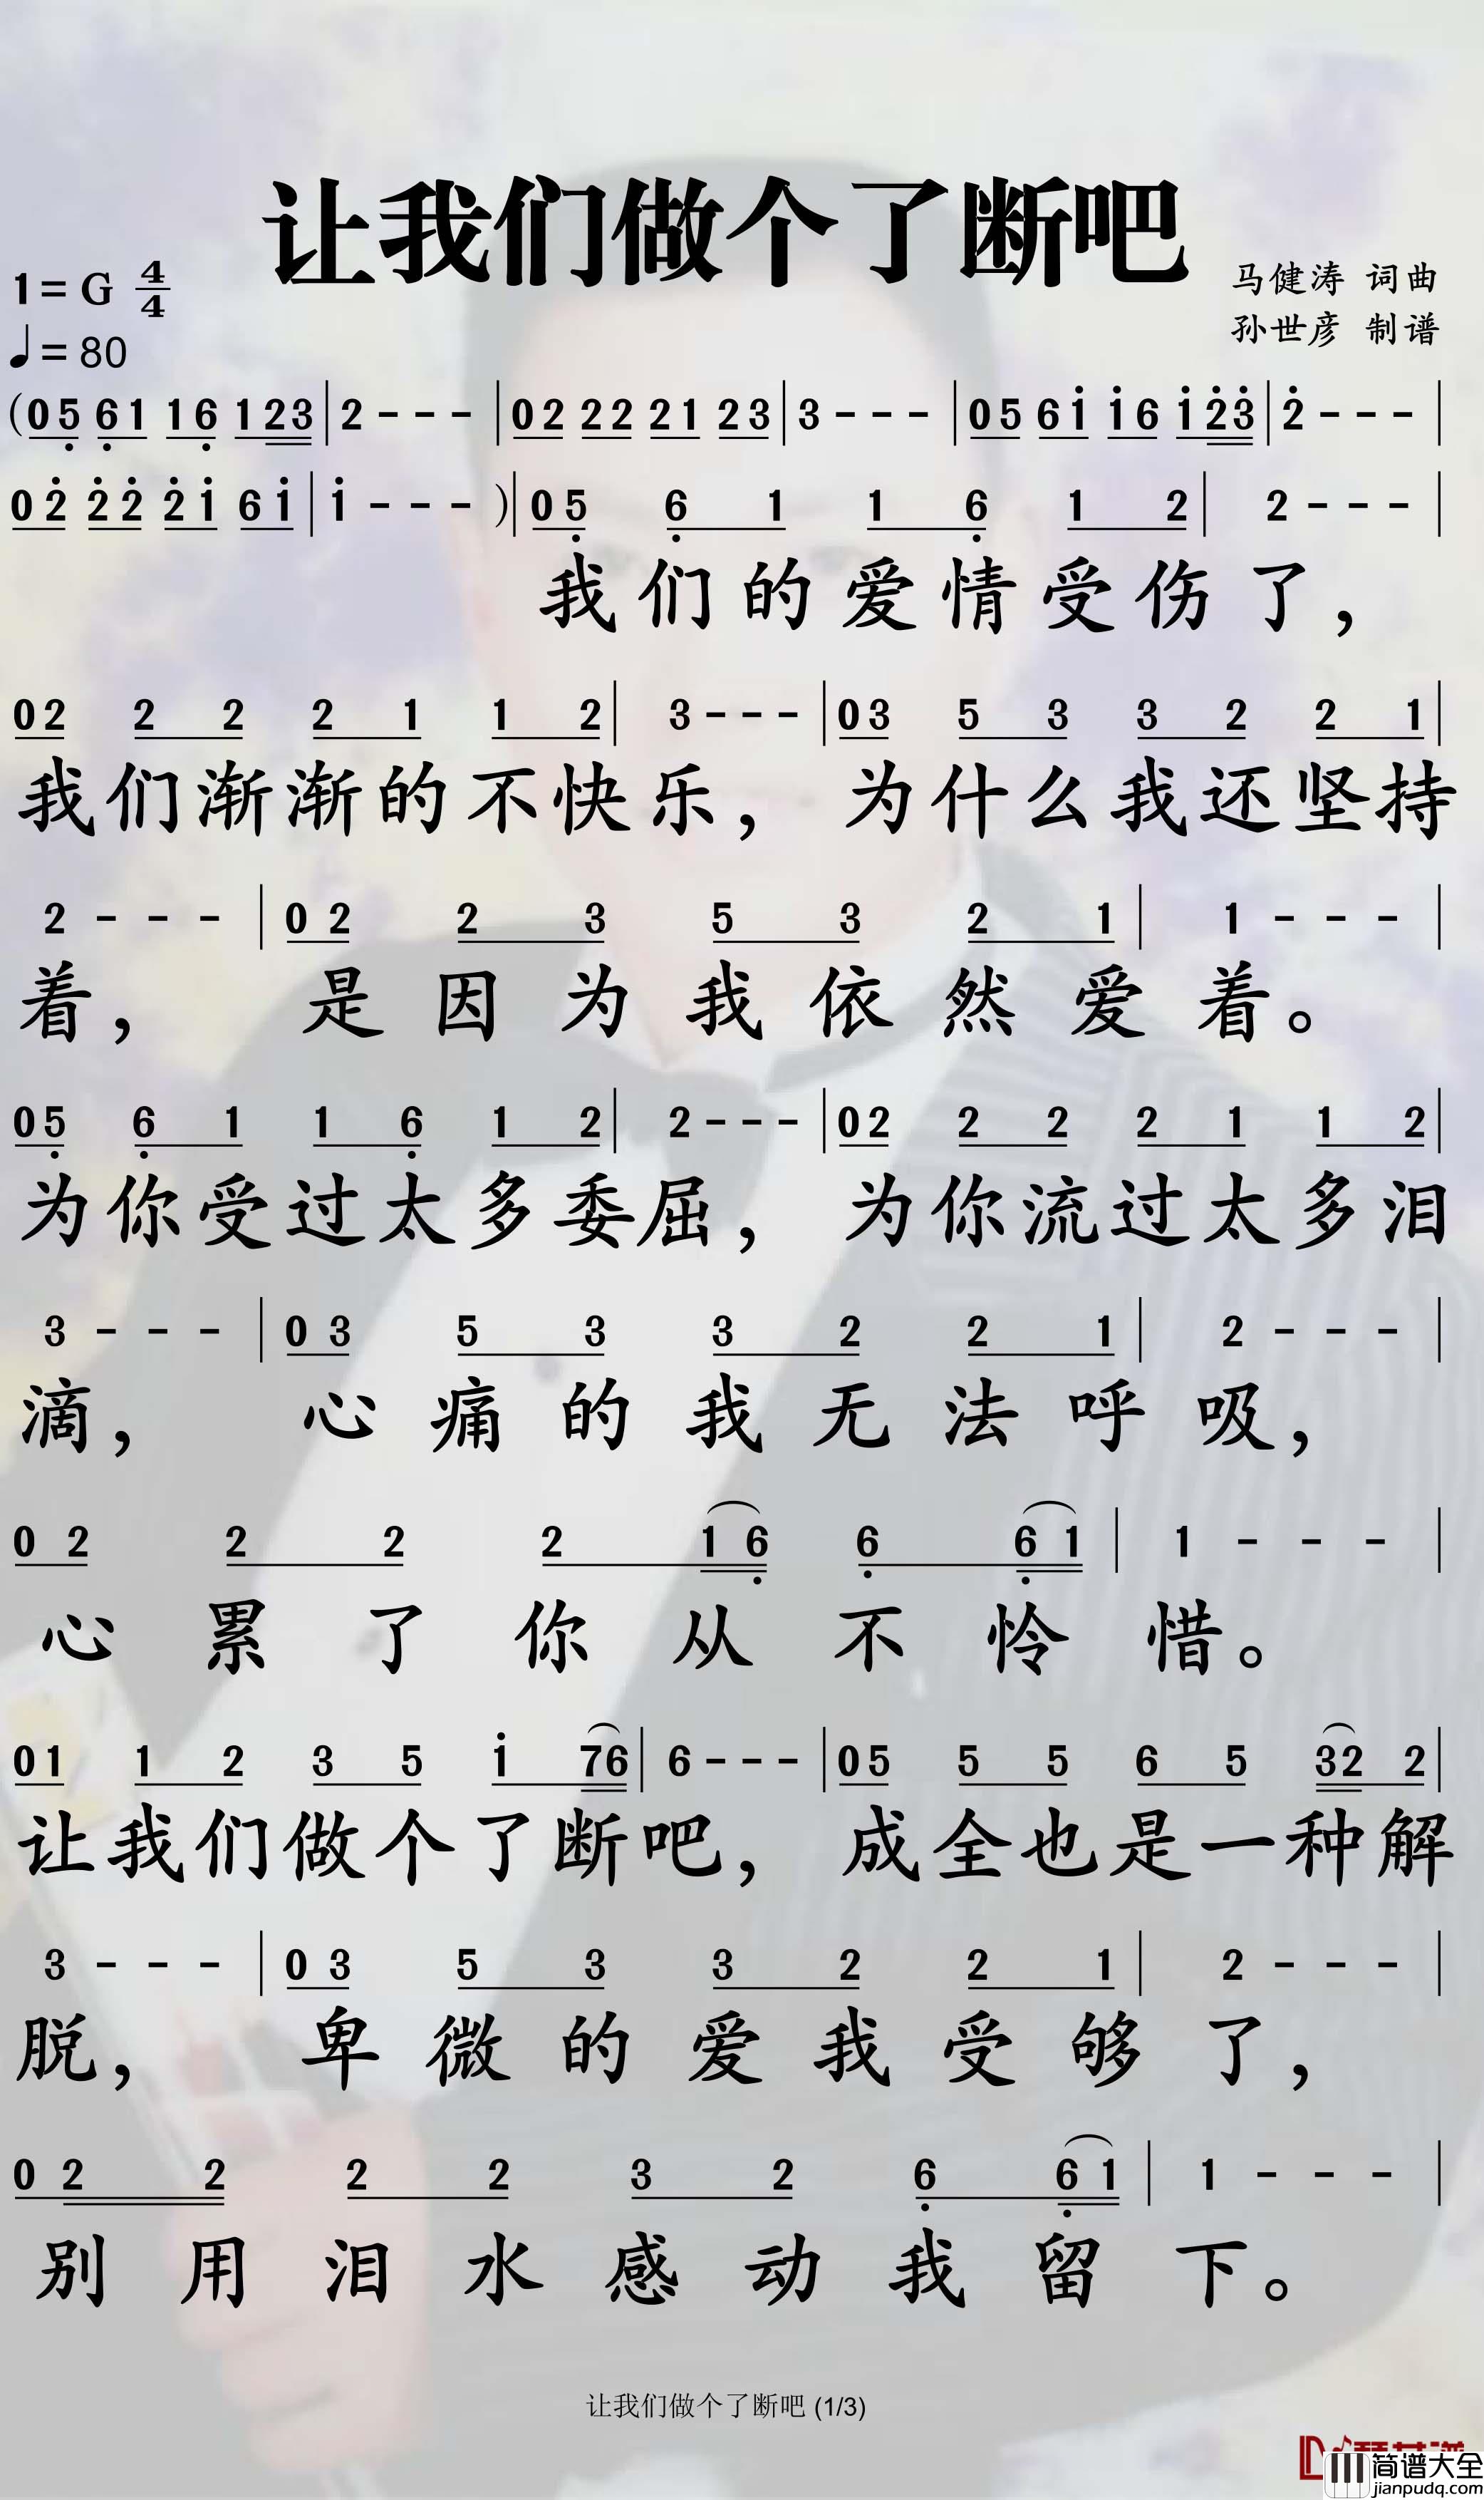 让我们做个了断吧
1=G 4/4
马健涛 词曲
♩=80
孙世彦 制谱
(0 5̣ 6̣ 1 1 6̣ 1 2 3 | 2 - - - | 0 2 2 2 2 1 2 3 | 3 - - - | 0 5 6 1̇ 1̇ 6 1̇ 2̇ 3̇ | 2̇ - - - |
0 2̇ 2̇ 2̇ 2̇ 1̇ 6 1̇ | 1̇ - - - )| 0 5̣ 6̣ 1 1 6̣ 1 2 | 2 - - - |
我们的爱情受伤了，
0 2 2 2 2 1 1 2 | 3 - - - | 0 3 5 3 3 2 2 1 |
我们渐渐的不快乐，为什么我还坚持
2 - - - | 0 2 2 3 5 3 2 1 | 1 - - - |
着，是因为我依然爱着。
0 5̣ 6̣ 1 1 6̣ 1 2 | 2 - - - | 0 2 2 2 2 1 1 2 |
为你受过太多委屈，为你流过太多泪
3 - - - | 0 3 5 3 3 2 2 1 | 2 - - - |
滴，心痛的我无法呼吸，
0 2 2 2 2 1 6̣ 6̣ 6̣ 1 | 1 - - - |
心累了你从不怜惜。
0 1 1 2 3 5 1̇ 7 6 | 6 - - - | 0 5 5 5 6 5 3 2 2 |
让我们做个了断吧，成全也是一种解
3 - - - | 0 3 5 3 3 2 2 1 | 2 - - - |
脱，卑微的爱我受够了，
0 2 2 2 2 3 2 6̣ 6̣ 1 | 1 - - - |
别用泪水感动我留下。
让我们做个了断吧 (1/3)
简谱大全
jianpudq.com